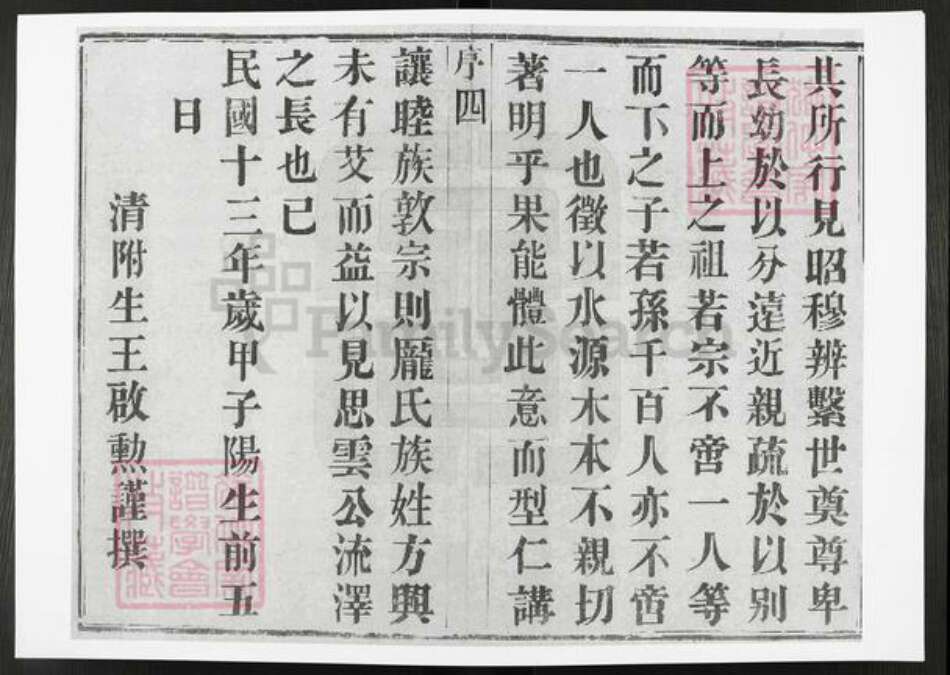 其所行見昭穆辨繫世奠尊卑
長幼於以分遠近親疏於以別
等而上之祖若宗不啻一人等
而下之子若孫千百人亦不啻
一人也徵以水源木本不親切
著明乎果能體此意而型仁講
序四
讓睦族敦宗則龐氏族姓方興
未有艾而益以見思雲公流澤
之長也已
民國十三年歲甲子陽生前五
日
清附生王啟勲謹撰
FamilySearch